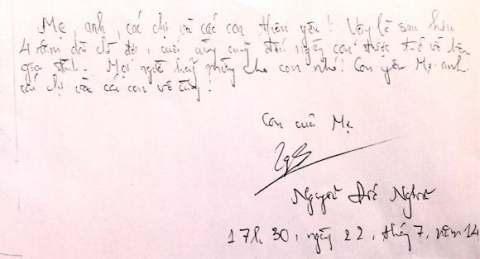 Mẹ, anh, các chị và các con thân yêu! Vậy là sau hơn
4 năm đằng đẵng, cuối cùng cũng đến ngày con được trở về bên
gia đình. Mọi người hãy mừng cho con nhé! Con yêu Mẹ, anh
các chị và các con vô cùng!
Con của Mẹ
Nguyễn Đức Nghĩa
17h 30, ngày 22, tháng 7, năm 14